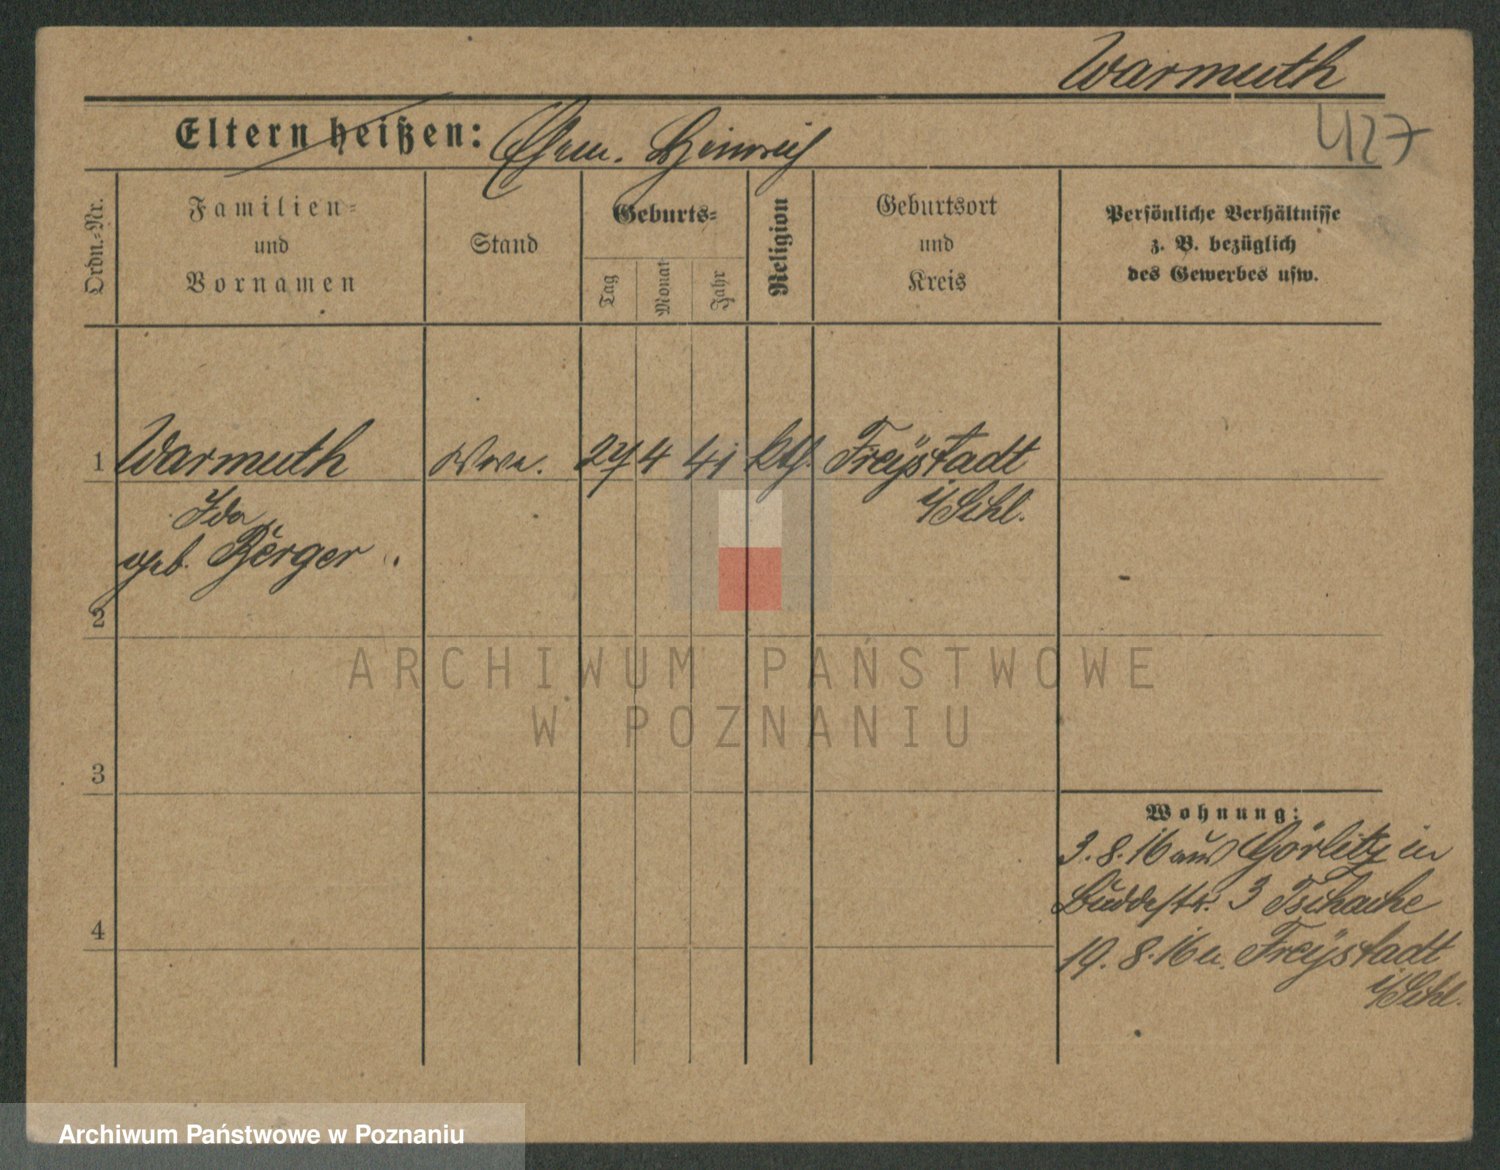 Warmuth
427
Eltern heißen: Ehem. Heinrich
Ordn.-Nr.
Familien-
und
Vornamen
Stand
Geburts-
Tag
Monat
Jahr
Religion
Geburtsort
und
Kreis
Persönliche Verhältnisse
z. B. bezüglich
des Gewerbes usw.
1 Warmuth Wwe. 27 4 41 kth. Freystadt
i/Schl.
Ida
geb. Berger.
2
ARCHIWUM PAŃSTWOWE
W POZNANIU
3
Wohnung:
3.8.16 aus Görlitz in
Buddestr. 3 Tschache
4
19.8.16 n. Freystadt
i/Schl.
Archiwum Państwowe w Poznaniu